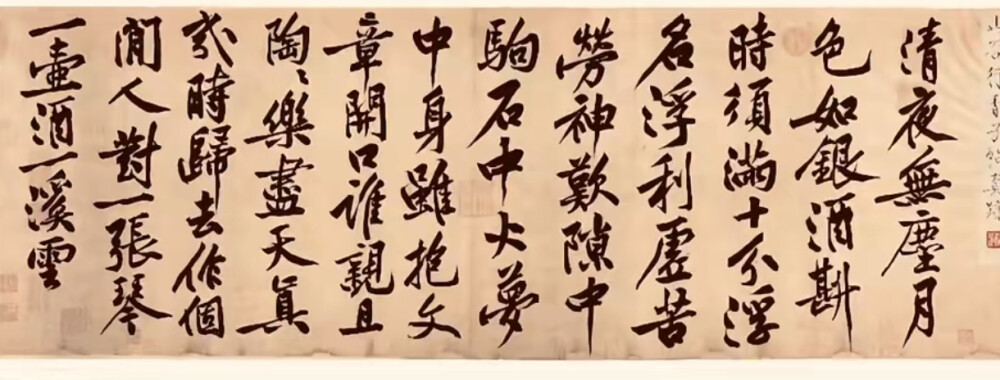 清夜無塵月
色如銀酒斟
時須滿十分浮
名浮利虛苦
勞神歎隙中
駒石中火夢
中身雖抱文
章開口誰親且
陶〻樂盡天真
幾時歸去作個
閒人對一張琴
一壺酒一溪雲